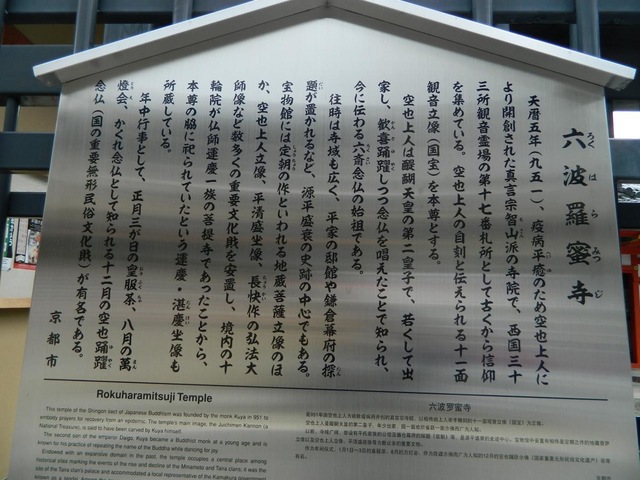 六波羅蜜寺
ろくはらみつじ
天暦五年(九五一)、疫病平癒のため空也上人に
より開創された真言宗智山派の寺院で、西国三十
三所観音霊場の第十七番札所として古くから信仰
を集めている。空也上人の自刻と伝えられる十一面
観音立像(国宝)を本尊とする。
空也上人は醍醐天皇の第二皇子で、若くして出
家し、歓喜踊躍しつつ念仏を唱えたことで知られ、
今に伝わる六斎念仏の始祖である。
往時は寺域も広く、平家の邸館や鎌倉幕府の探
題が置かれるなど、源平盛衰の史跡の中心でもある。
宝物館には定朝の作といわれる地蔵菩薩立像のほ
か、空也上人立像、平清盛坐像、長快作の弘法大
師像など数多くの重要文化財を安置し、境内の十
輪院が仏師運慶一族の菩提寺であったことから、
本尊の脇に祀られていたという運慶・湛慶坐像も
所蔵している。
年中行事として、正月三が日の皇服茶、八月の萬
燈会、かくれ念仏として知られる十二月の空也踊躍
念仏(国の重要無形民俗文化財)が有名である。
京都市
Rokuharamitsuji Temple
This temple of the Shingon sect of Japanese Buddhism was founded by the monk Kuya in 951 to
embody prayers for recovery from an epidemic. The temple's main image, the Juichimen Kannon (a
National Treasure), is said to have been carved by Kuya himself.
The second son of the emperor Daigo, Kuya became a Buddhist monk at a young age and is
known for his practice of repeating the name of the Buddha while dancing for joy.
Endowed with an expansive domain in the past, the temple occupies a central place among
historical sites marking the events of the rise and decline of the Minamoto and Taira clans; it was the
site of the Taira clan's palace and accommodated a local representative of the Kamakura government
六波罗蜜寺